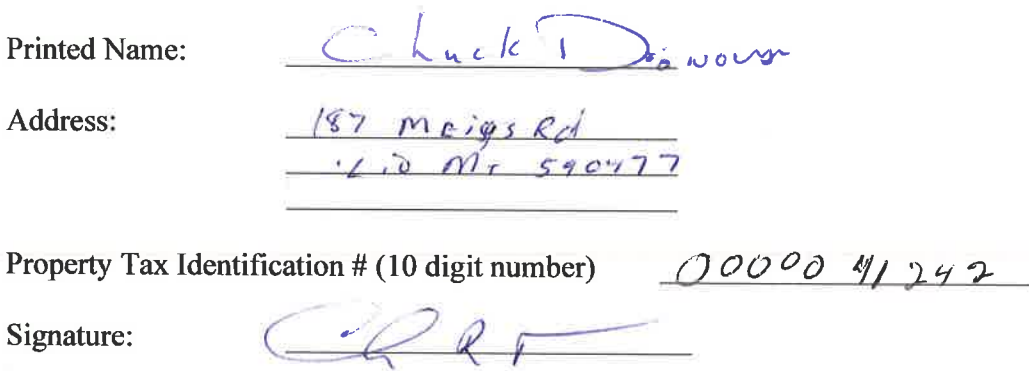 Printed Name: Chuck Donovan
Address: 187 Meigs Rd
MT 590477
Property Tax Identification # (10 digit number) 0000041242
Signature: